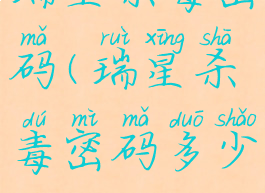 mǎ ruì xīng shā
码(瑞星杀
dú mì mǎ duō shǎo
毒密码多少